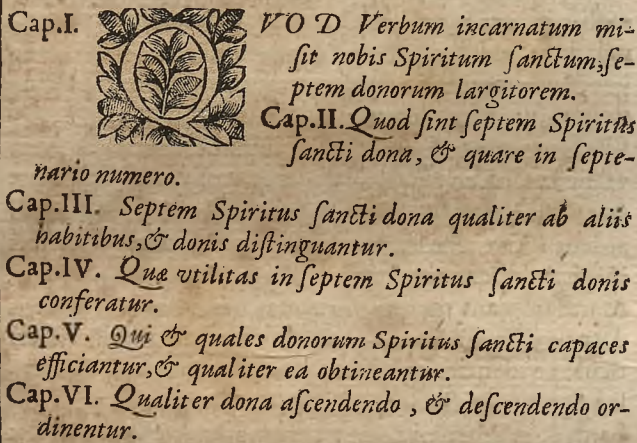 Cap.I. QVOD Verbum incarnatum mi-
ſit nobis Spiritum ſanctum, ſe-
ptem donorum largitorem.
Cap.II. Quod ſint ſeptem Spiritus
ſancti dona, & quare in ſepte-
nario numero.
Cap.III. Septem Spiritus ſancti dona qualiter ab aliis
habitibus, & donis diſtinguantur.
Cap.IV. Quæ vtilitas in ſeptem Spiritus ſancti donis
conferatur.
Cap.V. Qui & quales donorum Spiritus ſancti capaces
efficiantur, & qualiter ea obtineantur.
Cap.VI. Qualiter dona aſcendendo, & deſcendendo or-
dinentur.